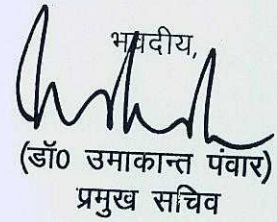 भवदीय,
(डॉ0 उमाकान्त पंवार)
प्रमुख सचिव